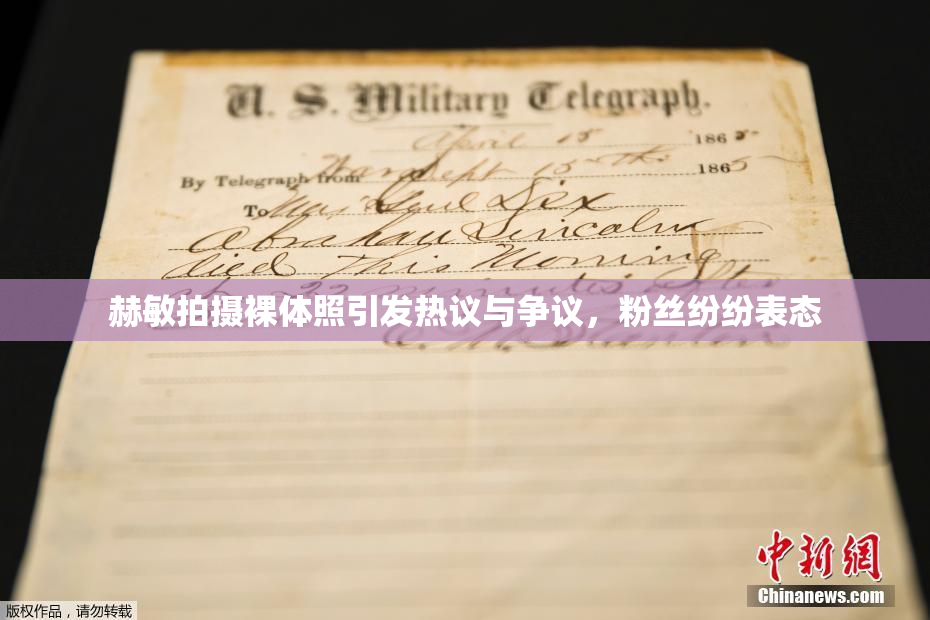 U. S. Military Telegraph.
April 15 1865
By Telegraph from War Dept 15th 1865
To Maj Genl Dix
Abraham Lincoln
died This Morning
at 22 minutes after
赫敏拍摄裸体照引发热议与争议，粉丝纷纷表态
E. M. Stanton
中新网
Chinanews.com
版权作品，请勿转载